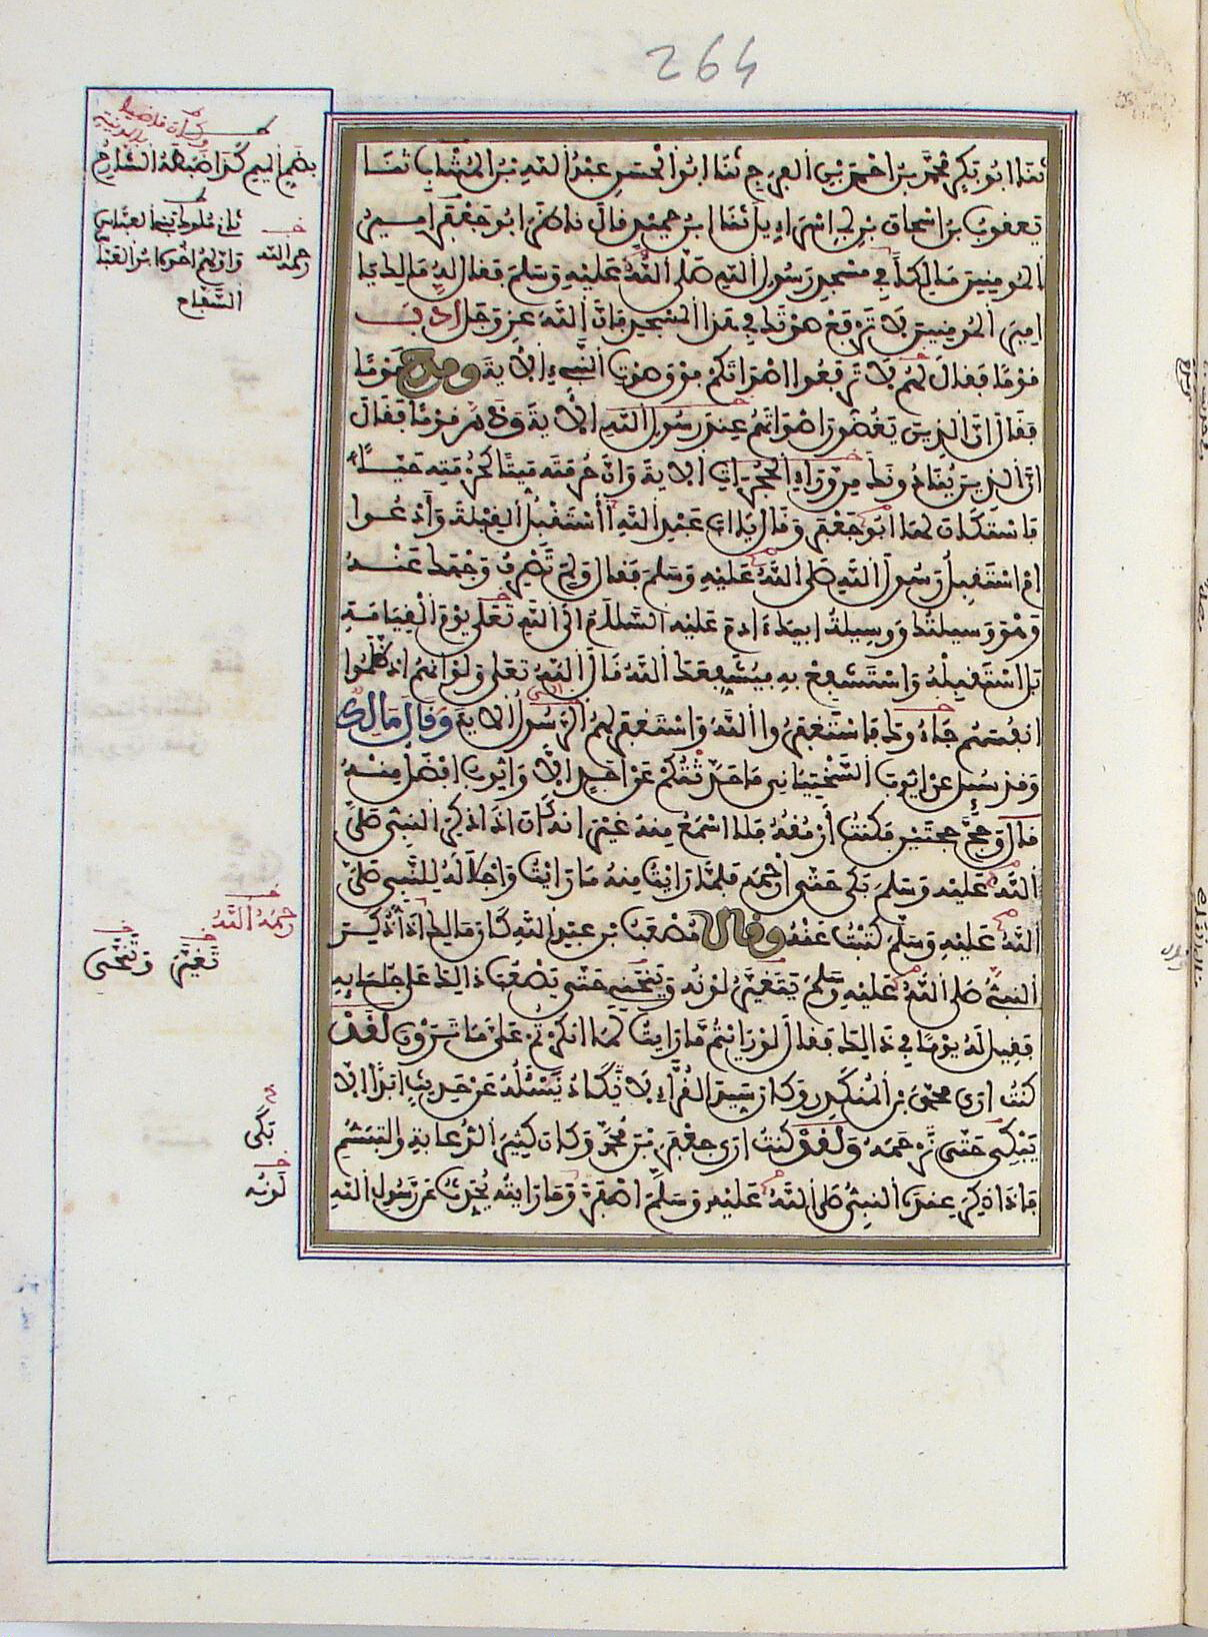 264
ثنا ابو بكر محمد بن احمد بن الفرج ثنا ابوا لحسن عبد الله بن المنتاب ثنا
يعقوب بن اسحاق بن ابي اسرايل ثنا ابن حميد قال ناظر ابو جعفر امير
المومنين مالكا في مسجد رسول الله صلى الله عليه وسلم فقال له مالك يا
امير المومنين لا ترفع صوتك في هذا المسجد فان الله عز وجل ادب
قوما فقال لهم لا ترفعوا اصواتكم فوق صوت النبيء الاية ومدح قوما
فقال ان الذين يغضون اصواتهم عند رسول الله الاية وذم قوما فقال
ان الذين ينادونك من وراء الحجرات الاية وان حرمته ميتا كحرمته حيا
فاستكان لها ابو جعفر وقال يا ابا عبد الله أأستقبل القبلة وأدعوا
ام استقبل رسول الله صلى الله عليه وسلم فقال ولم تصرف وجهك عنه
وهو وسيلتك ووسيلة ابيك ءادم عليه السلام الى الله تعلى يوم القيامة
بل استقبله واستشفع به فيشفعك الله قال الله تعلى ولو انهم اذ ظلموا
انفسهم جاءوك فاستغفروا الله واستغفر لهم الرسول الاية وقال مالك
وقد سئل عن ايوب السختياني ما حدثتكم عن احد الا وايوب افضل منه
قال وحج حجتين فكنت ارمقه فلا اسمع منه غير انه كان اذا ذكر النبي صلى
الله عليه وسلم بكى حتى ارحمه فلما رايت منه ما رايت واجلاله للنبي صلى
الله عليه وسلم كتبت عنه وقال مصعب بن عبد الله كان مالك اذا ذكر
النبي صلى الله عليه وسلم يتغير لونه وينحني حتى يصعب ذالك على جلسايه
فقيل له يوما في ذالك فقال لو رايتم ما رايت لما انكرتم على ما ترون لقد
كنت ارى محمد بن المنكدر وكان سيد القراء لا يكاد يسئله عن حديث ابدا الا
يبكي حتى نرحمه ولقد كنت ارى جعفر بن محمد وكان كثير الدعابة والتبسم
فاذا ذكر عنده النبي صلى الله عليه وسلم اصفر وما رايته يحدث عن رسول الله
بضم الميم كذا ضبطه الشارح
ثاني ملوك بني العباس
واولهم اخوه ابو العباس
السفاح
رحمه الله
رحمه الله
تغير وينحني
بكى
لونه